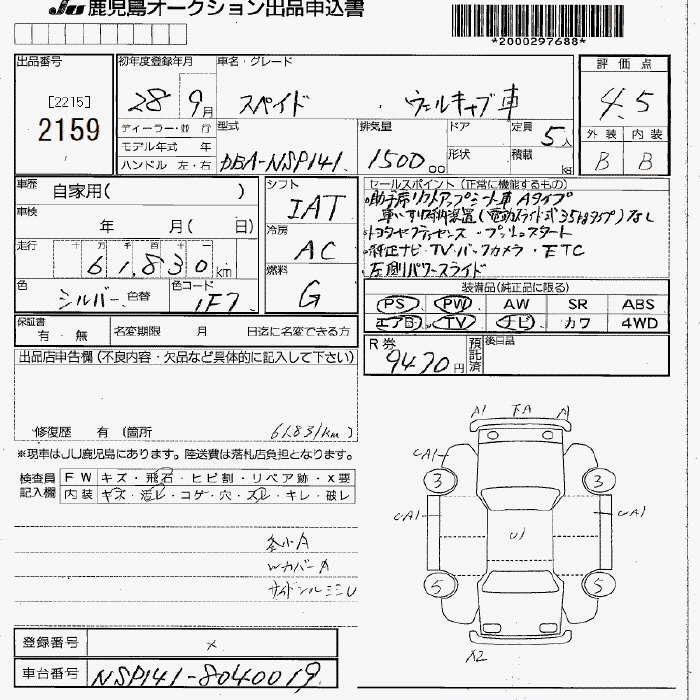 JU 鹿児島オークション出品申込書
*2000297688*
出品番号
[2215]
2159
初年度登録年月
28 9月
車名・グレード
スペイド ウェルキャブ車
評価点
4.5
外装 内装
B B
ディーラー・並 行
モデル年式 年
ハンドル 左・右
型式
DBA-NSP141
排気量
1500 cc
ドア
形状
定員
5人
積載
kg
車歴
自家用( )
車検
年 月( 日)
走行
十 万 千 百 十 一
61,830km
色
シルバー 色替
色コード
1F7
シフト
IAT
冷房
AC
燃料
G
セールスポイント(正常に機能するもの)
・助手席リフトアップシート車 Aタイプ
車いす収納装置(電動スライド式35kgタイプ)なし
・トヨタセーフティセンス・プッシュスタート
・純正ナビ・TV・バックカメラ・ETC
・左側パワースライド
装備品(純正品に限る)
PS PW AW SR ABS
エアB TV ナビ カワ 4WD
保証書
有・無
名変期限 月 日迄に名変できる方
R券
9470円
預託済
後日品
出品店申告欄(不良内容・欠品など具体的に記入して下さい)
修復歴 有(箇所 61831km)
※現車はJU鹿児島にあります。陸送費は落札店負担となります。
検査員
記入欄
FW キズ・飛石・ヒビ割・リペア跡・X要
内装 キズ・汚レ・コゲ・穴・スレ・キレ・破レ
各小A
Wカバー A
サイドシル ミニU
A1 FA A
UA1
3 3
UA1 UA1
U1
5 5
X2
登録番号 ×
車台番号 NSP141-8040019